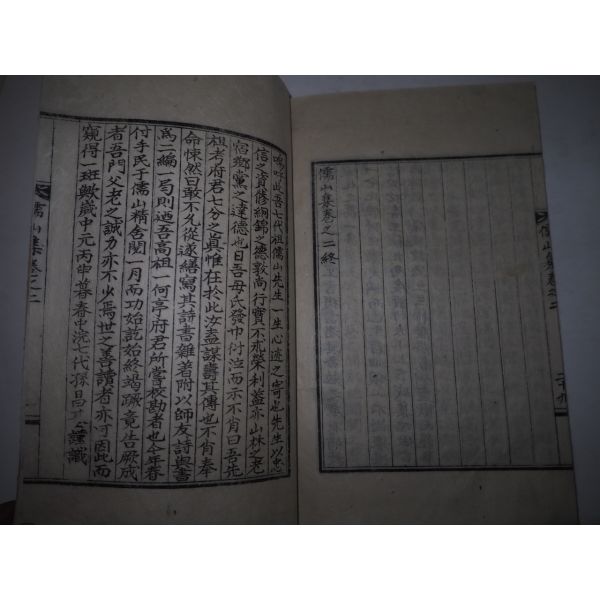 儒山集卷之二終
儒山集卷之二
二十九
嗚呼此吾七代祖儒山先生一生心迹之寄也先生以忠
信之資修絅錦之德敦尚行實不求榮利蓋亦山林之老
宿鄕黨之達德也日吾母氏發巾衍泣而示不肖曰吾先
祖考府君七分之眞惟在於此汝盍謀壽其傳也不肖奉
命悚然曰敢不夂從遂繕寫其詩書雜著附以師友詩與書
爲二編一局則迺吾高祖一何亭府君所嘗校勘者也今年春
付手民于儒山精舍閱一月而功始訖始終竭蹶竟告厥成
者吾門父老之誠力亦不少焉世之善讀者亦可因此而
窺得一班歟歲中元丙申暮春中浣七代孫昌謹識
儒山集卷之二